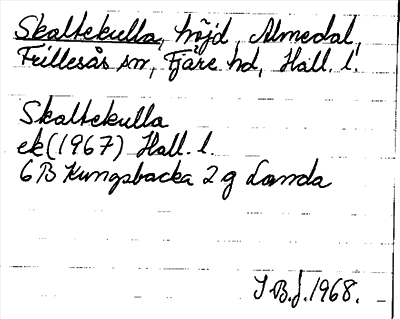 Skaltekulla, höjd, Almedal,
Frillesås sn, Fjäre hd, Hall. l.
Skaltekulla
ek (1967) Hall. l.
6 B Kungsbacka 2 g Landa
I B.f. 1968.